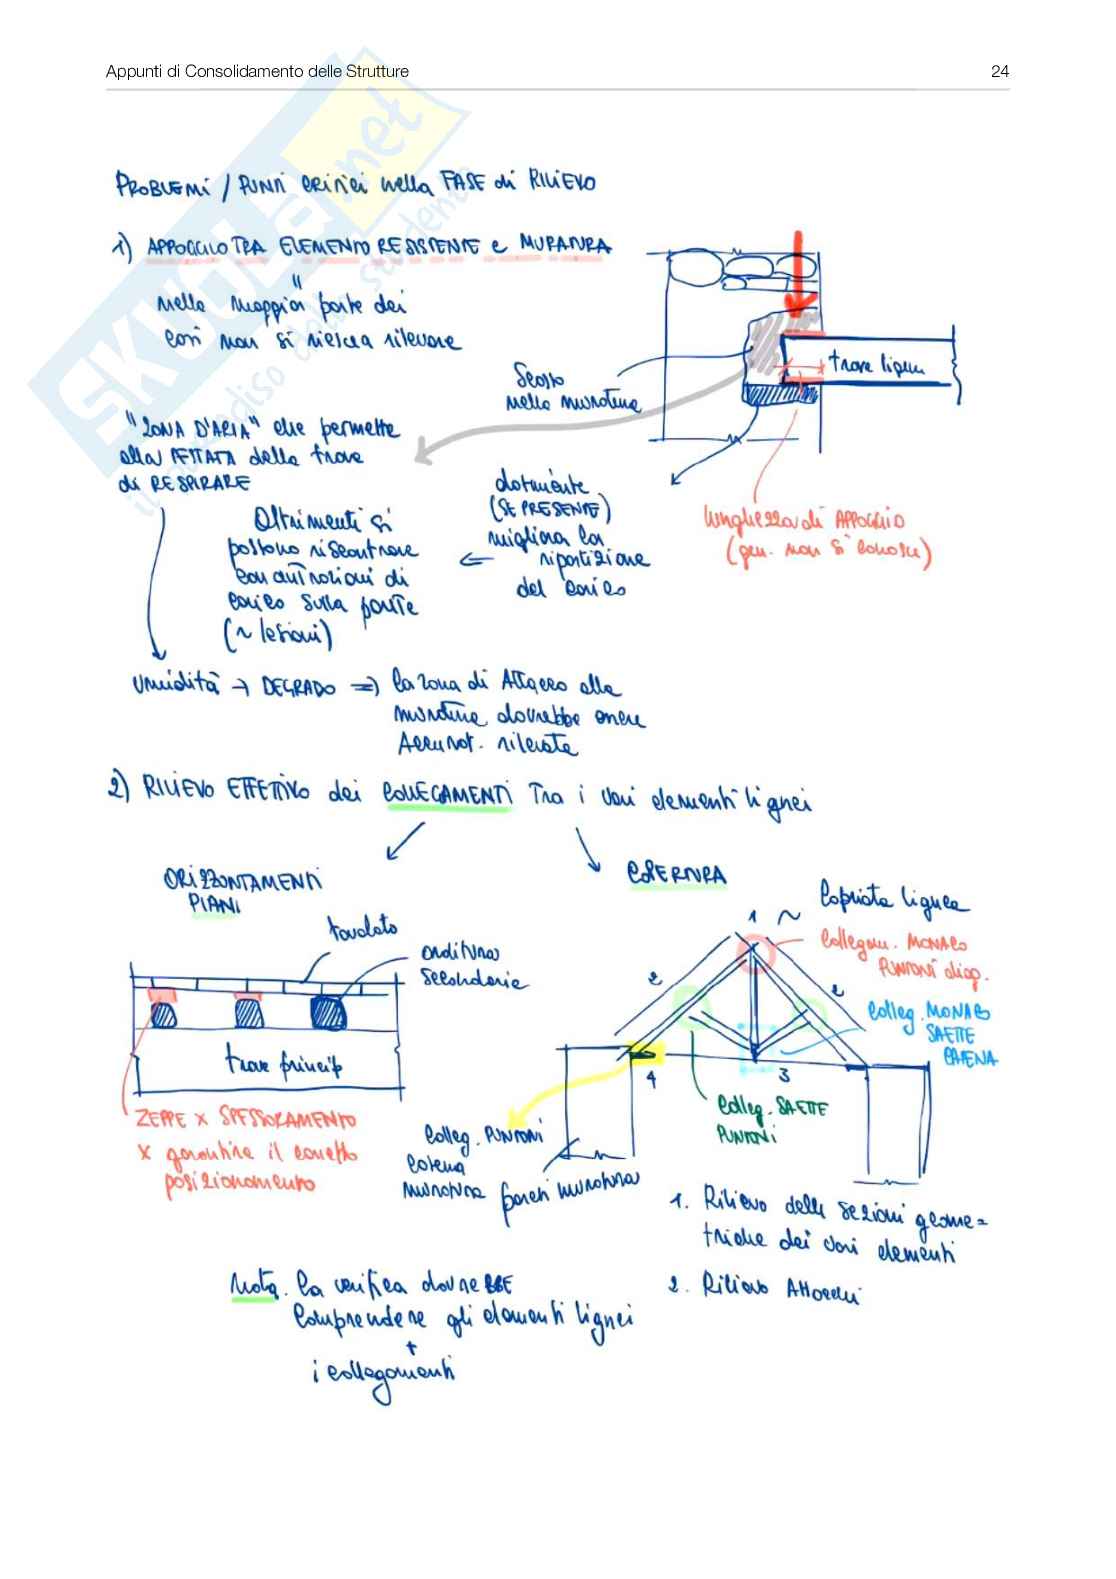 Appunti di Consolidamento delle Strutture
24
SKUOLA.net
PROBLEMI / PUNTI CRITICI nella FASE di RILIEVO
1) APPOGGIO TRA ELEMENTO RESISTENTE e MURATURA
nella maggior parte dei
casi non si riesce a rilevare
trave lignea
Scasso
nella muratura
"ZONA D'ARIA" che permette
alla TESTATA della trave
di RESPIRARE
dormiente
(SE PRESENTE)
migliora la
ripartizione
del carico
lunghezza di APPOGGIO
(gen. non si conosce)
Oltrimenti si
possono riscontrare
concentrazioni di
carico sulla parete
(~ lesioni)
⇐
Umidità → DEGRADO ⇒ la zona di Attacco alla
muratura dovrebbe essere
Accurat. rilevata
2) RILIEVO EFFETTIVO dei COLLEGAMENTI Tra i vari elementi lignei
ORIZZONTAMENTI
PIANI
COPERTURA
tavolato
orditura
secondaria
trave princip
ZEPPE x SPESSORAMENTO
x garantire il corretto
posizionamento
1 ~ Capriata lignea
collegam. MONACO
PUNTONI diag.
2
2
colleg. MONACO
SAETTE
CATENA
4
3
colleg. SAETTE
PUNTONI
colleg. PUNTONI
catena
muratura
pareti muratura
1. Rilievo delle sezioni geome=
triche dei vari elementi
2. Rilievo Attacchi
Nota. la verifica dovreBBE
comprendere gli elementi lignei
+
i collegamenti